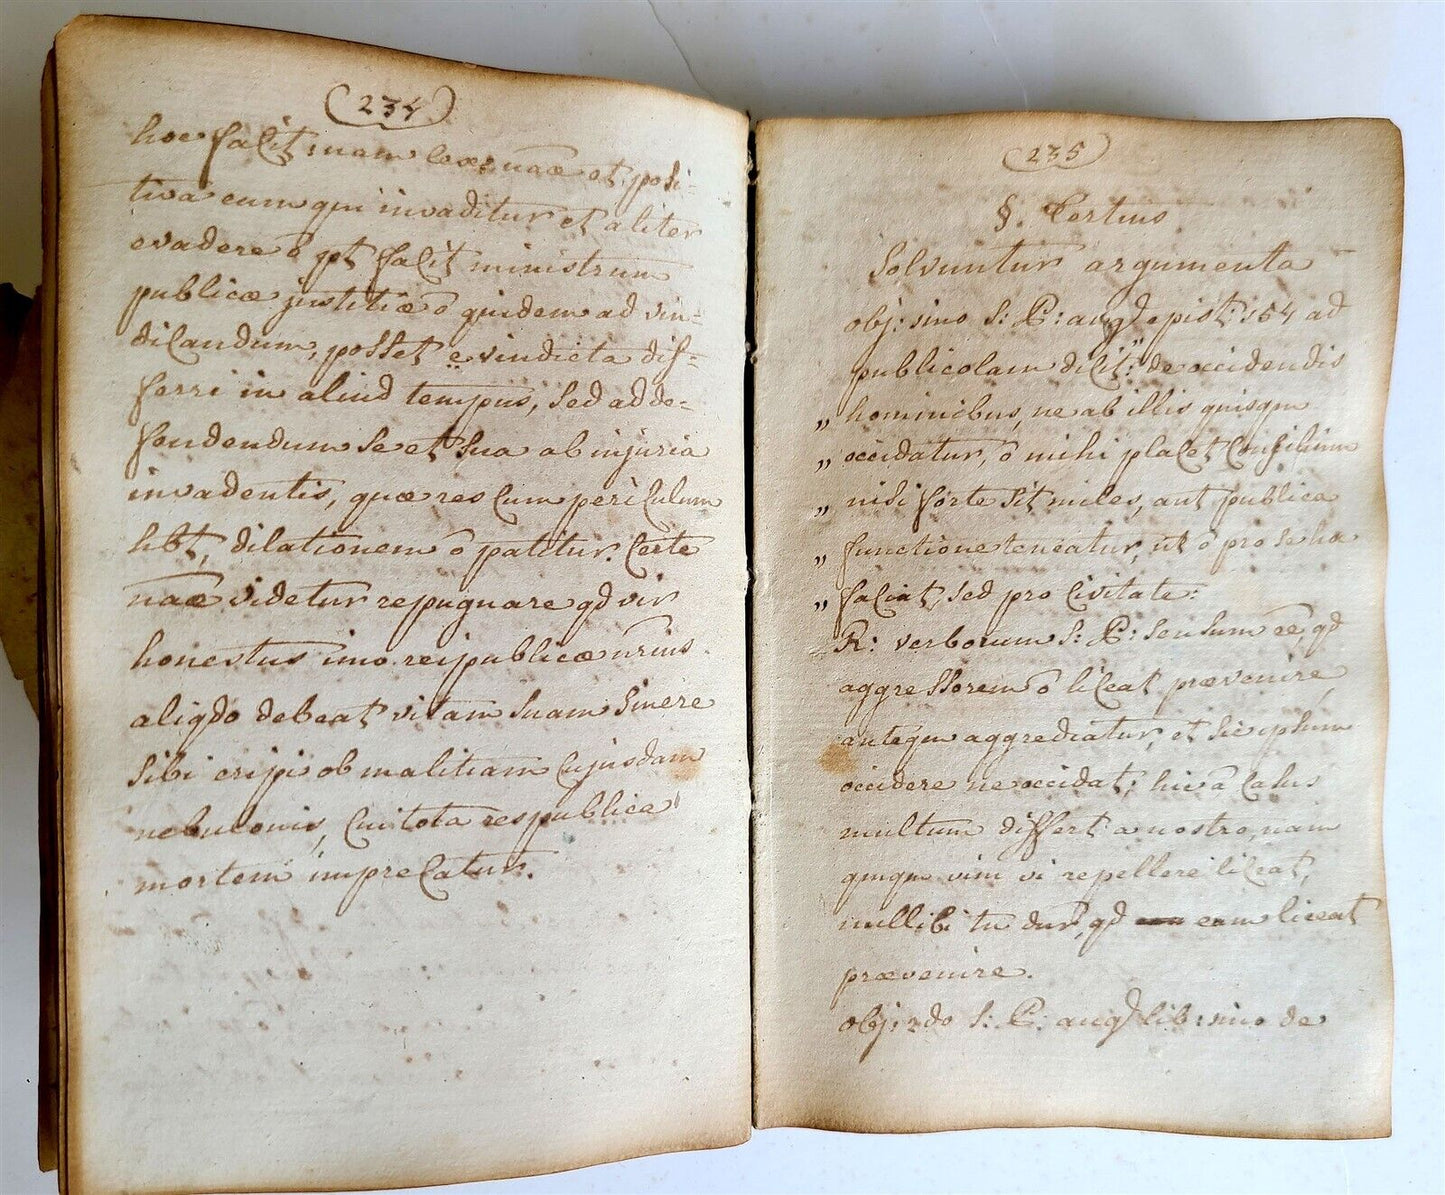 (234)
hoc facit, nam lex nāæ et posi=
tiva eum qui invaditur et aliter
evadere ō pt facit ministrum
publicæ justitiæ ō quidem ad vin=
dicandum, posset e. vindicta dif=
ferri in aliud tempus, sed ad de=
fendendum se et sua ab injuria
invadentis, quæ res cum periculum
hbt, dilationem ō patitur. Certe
nāæ videtur repugnare qd vir
honestus imo reipublicæ n̄rius
aliqdo debeat vitam suam sinere
sibi eripi ob malitiam cujusdam
nebulonis, cui tota respublica
mortem imprecatur.
(235)
§. Tertius
Solvuntur argumenta
obj: 1mo S: P: aug epist: 154 ad
publicolam dicit: "de occidendis
„ hominibus, ne ab illis quisqm
„ occidatur, ō mihi placet consilium
„ nisi forte sit miles, aut publica
„ functione teneatur, ut ō pro se hoc
„ faciat, sed pro civitate:
R: verborum S: P: sensum ēe, qd
aggressorem ō liceat prævenire,
anteqm aggrediatur, et sic ipsum
occidere ne occidat; hic ā casus
multum differt a nostro, nam
quiqm vim vi repellere liceat,
nullibi tn dur, qd eam liceat
prævenire.
obj: 2do S: P: aug lib: 1mo de